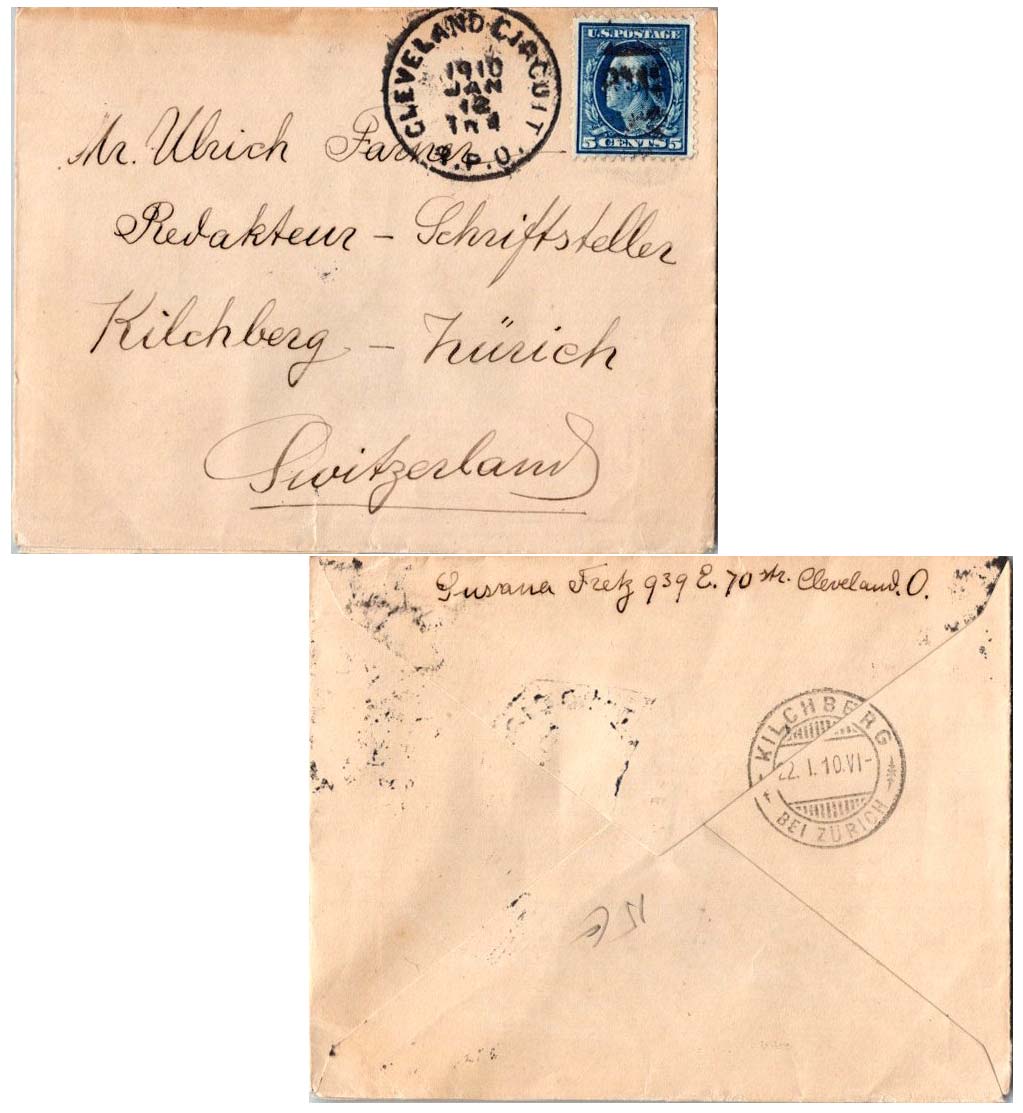 CLEVELAND CIRCUIT
1910
JAN
12
R.P.O.
U.S. POSTAGE
5 CENTS 5
Mr. Ulrich Farner
Redakteur – Schriftsteller
Kilchberg – Zürich
Switzerland
Susana Fretz 939 E. 70 str. Cleveland. O.
KILCHBERG
22. I. 10. VI-
BEI ZÜRICH